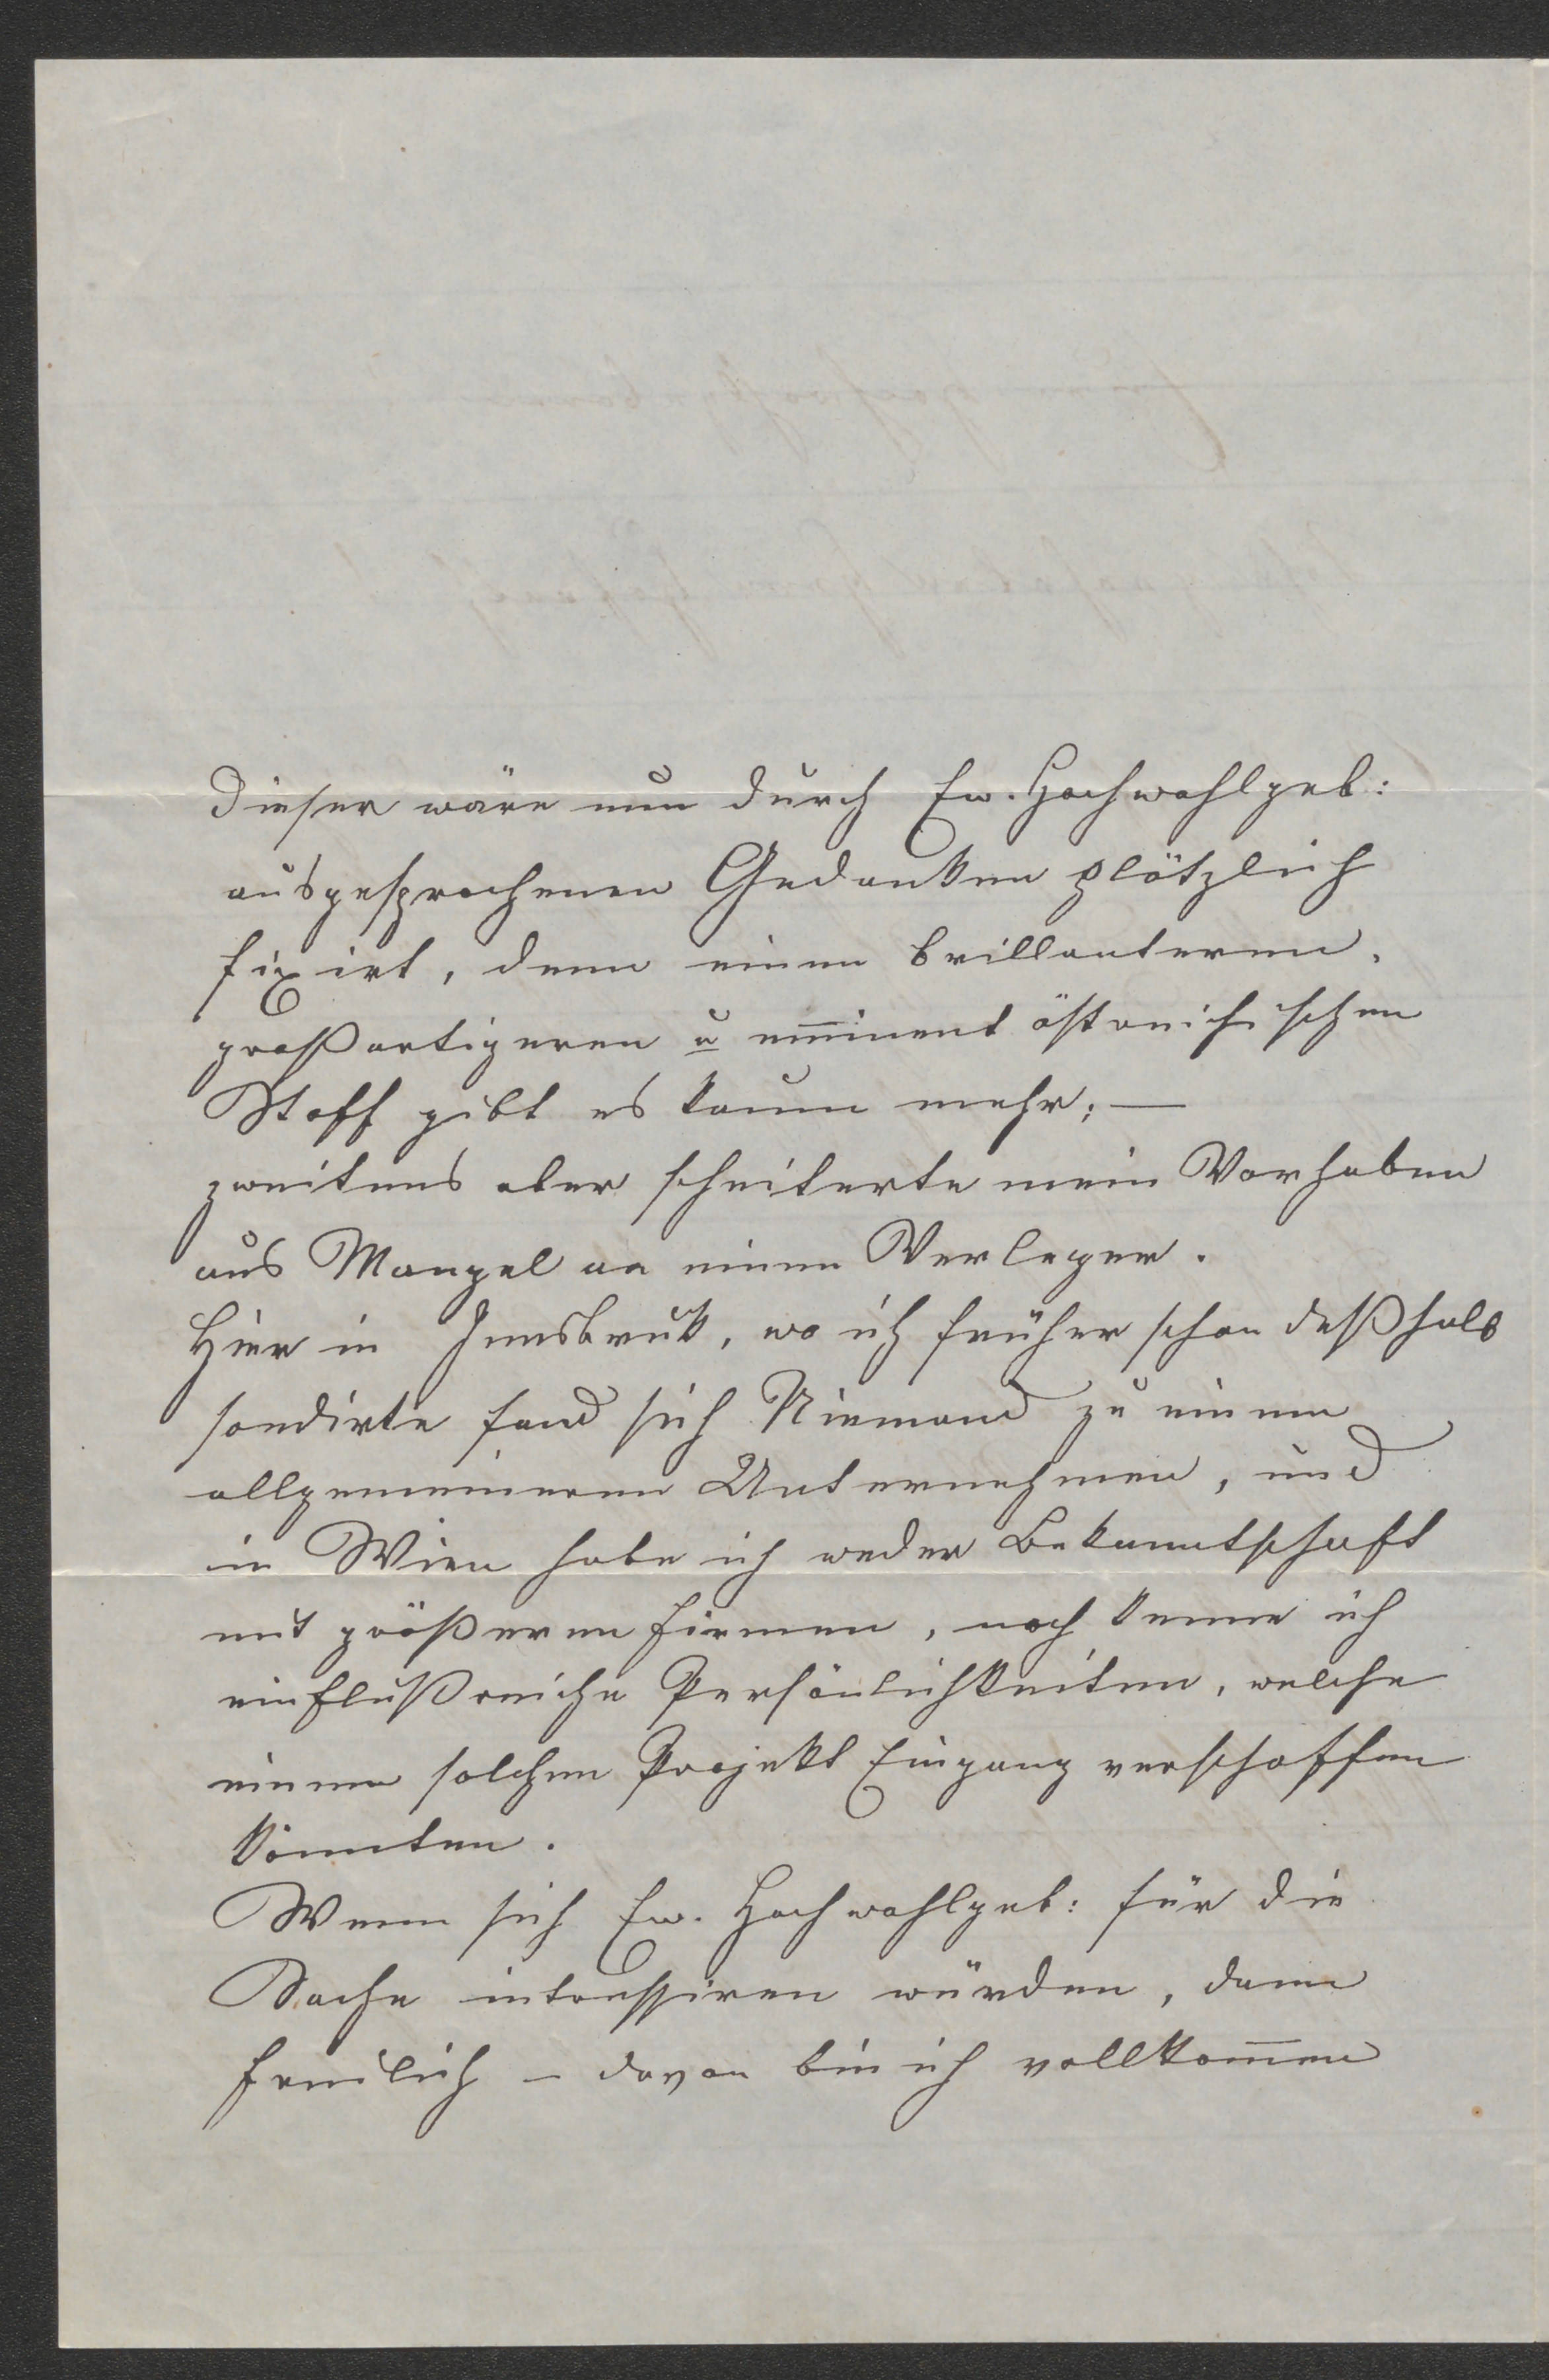 Dieser wäre nun durch Ew. Hochwohlgeb:
ausgesprochenen Gedanken plötzlich
fixirt, denn einen brillanteren,
großartigeren u em̅inent östreichischen
Stoff gibt es kaum mehr; —
zweitens aber scheiterte mein Vorhaben
aus Mangel an einen Verleger.
Hier in Innsbruk, wo ich früher schon deßhalb
sondirte fand sich Niemand zu einem
allgemeineren Unternehmen, und
in Wien habe ich weder Bekanntschaft
mit größeren Firmen, noch kenne ich
einflußreiche Persönlichkeiten, welche
einem solchen Projekt Eingang verschaffen
könnten.
Wenn sich Ew. Hochwohlgeb: für die
Sache intressiren würden, dann
freilich – davon bin ich vollkom̅en